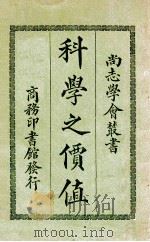 尚志學會叢書
科學之價值
商務印書館發行
www.topoo.info